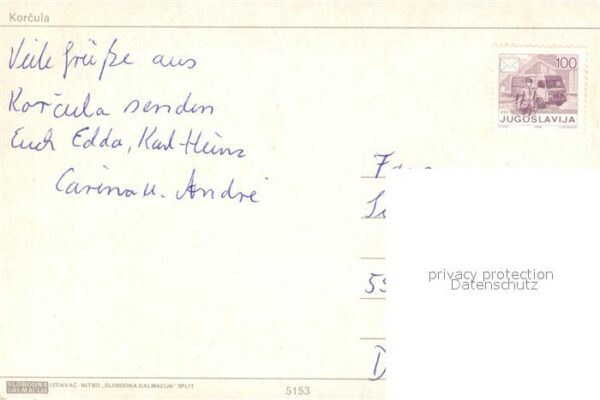 Korčula
Viele Grüße aus
Korčula senden
Euch Edda, Karl-Heinz
Carina u. André
100
JUGOSLAVIJA
privacy protection
Datenschutz
SLOBODNA
DALMACIJA
IZDAVAČ: NITRO „SLOBODNA DALMACIJA" SPLIT
5153